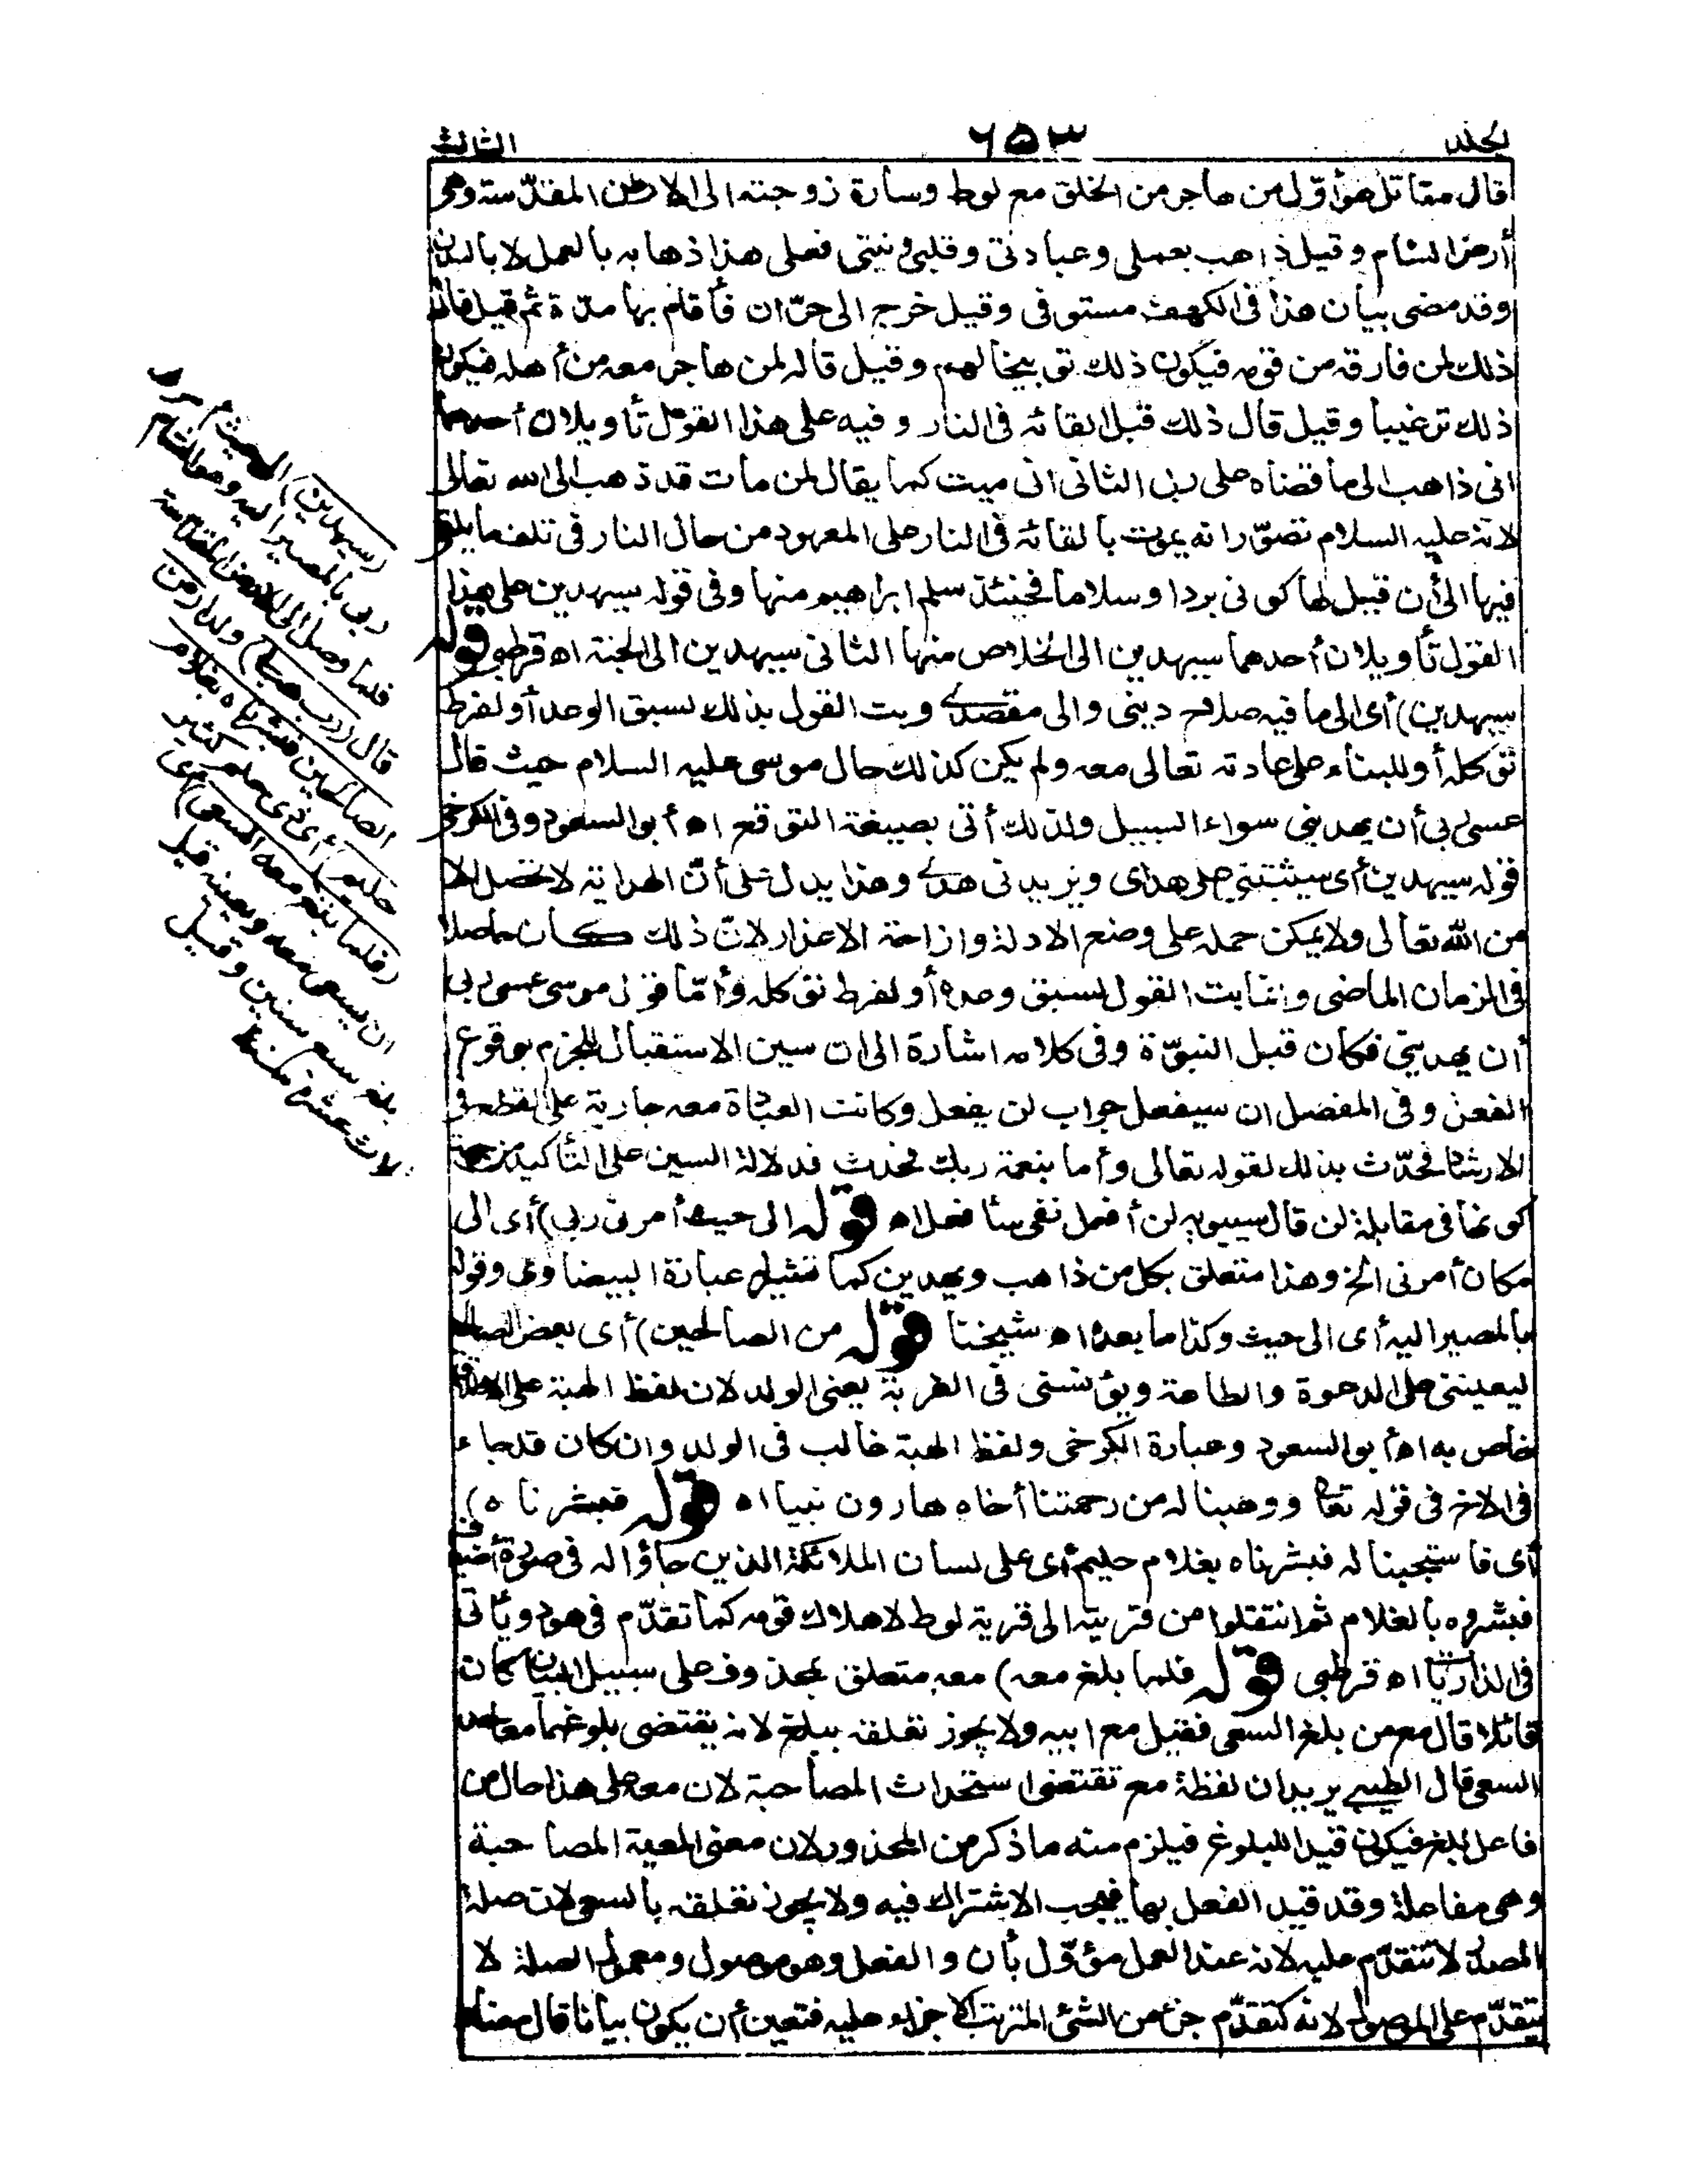 الجلد ٦٥٣ الثالث
قال مقاتل هو أوّل من هاجر من الخلق مع لوط وسارة زوجته الى الارض المقدّسة وهي
أرض الشام وقيل ذاهب بعملي وعبادتى وقلبى ونيتى فعلى هذا ذهابه بالعمل لا بالبدن
وقد مضى بيان هذا فى الكهف مستوفى وقيل خرج الى حرّان فأقام بها مدّة ثم قيل قال
ذلك لمن فارقه من قومه فيكون ذلك توبيخا لهم وقيل قاله لمن هاجر معه من أهله فيكون
ذلك ترغيبا وقيل قال ذلك قبل القائه فى النار وفيه على هذا القول تأويلان أحدهما
انى ذاهب الى ما قضاه على ربى الثانى انى ميت كما يقال لمن مات قد ذهب الى الله تعالى
لانه عليه السلام تصوّر انه يموت بالقائه فى النار على المعهود من حال النار فى تلف ما يلقى
فيها الى أن قيل لها كونى بردا وسلاما فحينئذ سلم ابراهيم منها وفى قوله سيهدين على هذا
القول تأويلان أحدهما سيهدين الى الخلاص منها الثانى سيهدين الى الجنة اه قرطبى قوله
سيهدين) أى الى ما فيه صلاح دينى والى مقصدى وبت القول بذلك لسبق الوعد أو لفرط
توكله أو للبناء على عادته تعالى معه ولم يكن كذلك حال موسى عليه السلام حيث قال
عسى ربى أن يهدينى سواء السبيل ولذلك أتى بصيغة التوقع اه أبو السعود وفى الكرخى
قوله سيهدين أى سيثبتنى على هداى ويزيدنى هدى وهذا يدل على أنّ الهداية لا تحصل الا
من الله تعالى ولا يمكن حمله على وضع الادلة وازاحة الاعذار لانّ ذلك كان حاصلا
فى الزمان الماضى وبتابت القول لسبق وعده أو لفرط توكله وأمّا قول موسى عسى ربى
أن يهدينى فكان قبل النبوّة وفى كلامه اشارة الى ان سين الاستقبال للجزم بوقوع
الفعل وفى المفصل ان سيفعل جواب لن يفعل وكانت العبادة معه جارية على القطع فى
الارشاد فحدّث بذلك لقوله تعالى وأما بنعمة ربك فحدث فدلالة السين على التأكيد من جهة
كونها فى مقابلة لن قال سيبويه لن أفعل نفى سأفعل اه قوله الى حيث أمرنى ربى) أى الى
مكان أمرنى الخ وهذا متعلق بكل من ذاهب ويهدين كما تشير له عبارة البيضاوى وقوله
بالمصير اليه أى الى حيث وكذا ما بعده اه شيخنا قوله من الصالحين) أى بعض الصالحين
ليعيننى على الدعوة والطاعة ويؤنسنى فى الغربة يعنى الولد لان لفظ الهبة على الاطلاق
خاص به اه أبو السعود وعبارة الكرخى ولفظ الهبة غالب فى الولد وان كان قد جاء
فى الاخ فى قوله تعالى ووهبنا له من رحمتنا أخاه هارون نبيا اه قوله فبشرناه)
أى فاستجبنا له فبشرناه بغلام حليم أى على لسان الملائكة الذين جاؤا له فى صورة أضياف
فبشروه بالغلام ثم انتقلوا من قريته الى قرية لوط لاهلاك قومه كما تقدّم فى هود ويأتى
فى الذاريات اه قرطبى قوله فلما بلغ معه) معه متعلق بمحذوف على سبيل البيان كان
قائلا قال مع من بلغ السعى فقيل مع ابيه ولا يجوز تعلقه ببلغ لانه يقتضى بلوغهما معا حد
السعى قال الطيبى يريد ان لفظة مع تقتضى استحداث المصاحبة لان مع على هذا حال من
فاعل بلغ فيكون قيدا للبلوغ فيلزم منه ما ذكر من المحذور لان معنى المعية المصاحبة
وهى مفاعلة وقد قيد الفعل بها فيجب الاشتراك فيه ولا يجوز تعلقه بالسعى لان صلة
المصدر لا تتقدّم عليه لانه عند العمل مؤوّل بأن والفعل وهو موصول ومعمول الصلة لا
يتقدّم على الموصول لانه كتقدّم جزء من الشئ المترتب الاجزاء عليه فتعين أن يكون بيانا قال معناه
(سيهدين) الى حيث أمرنى
ربى بالمصير اليه وهو الشام
فلما وصل الى الارض المقدّسة
قال (رب هب لى) ولدا (من
الصالحين فبشرناه بغلام
حليم) أى ذى حلم كثير
(فلما بلغ معه السعى) أى
ان يسعى معه ويعينه قيل
بلغ سبع سنين وقيل
ثلاث عشرة سنة